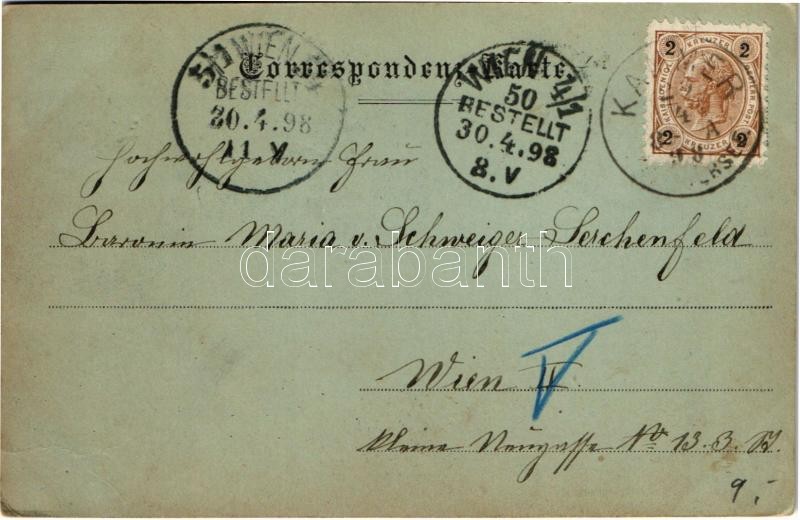 Correspondenz-Karte
5/1 WIEN
BESTELLT
30.4.98
11.V
WIEN 4/1
50
BESTELLT
30.4.98
8.V
2 2
KREUZER
2 2
KREUZER
Hochwohlgeborn Frau
Baronin Maria v. Schweiger Lerchenfeld
darabanth
Wien IV
V
kleine Neugasse No 13. 3. St.
9.-